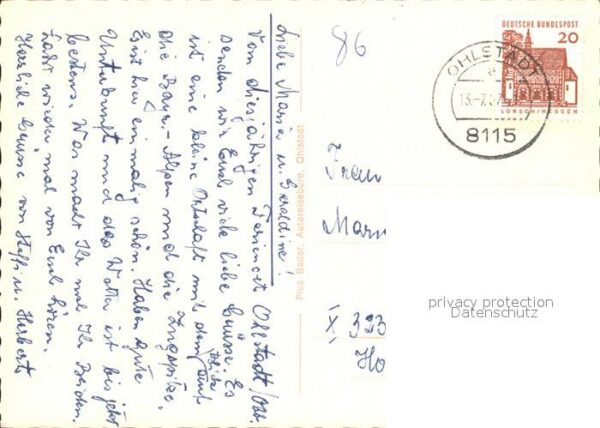 Liebe Maria u. Geraldine!
Vom diesjährigen Ferienort Ohlstadt/Obb.
senden wir Euch viele liebe Grüsse. Es
ist eine kleine Ortschaft mit dem Blick auf
die Bayr.-Alpen und die Zugspitze.
Es ist hier einmalig schön. Haben gute
Unterkunft und das Wetter ist bis jetzt
bestens. Was macht Ihr und Ihr Beiden.
Lasst wieder mal von Euch hören.
Herzliche Grüsse von Steffi u. Herbert
Pius Bader, Autoreisebüro, Ohlstadt
86
DEUTSCHE BUNDESPOST
20
LORSCH/HESSEN
OHLSTADT
8115
Frau
X 323
Ho
privacy protection
Datenschutz